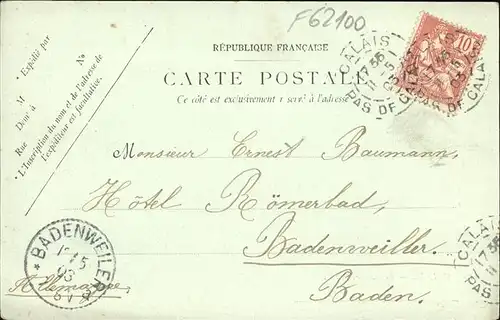 F62100
RÉPUBLIQUE FRANÇAISE
CARTE POSTALE
Ce côté est exclusivement réservé à l'adresse
Expédié par
M
Demt à
Rue
No
L'Inscription du nom et de l'adresse de
l'expéditeur est facultative.
10
CALAIS
17 35
PAS DE CALAIS
CALAIS
PAS DE CALAIS
Monsieur Ernest Baumann.
Hôtel Römerbad,
Badenweiller.
Baden.
Allemagne
BADENWEILER
CALAIS
17 35
PAS DE